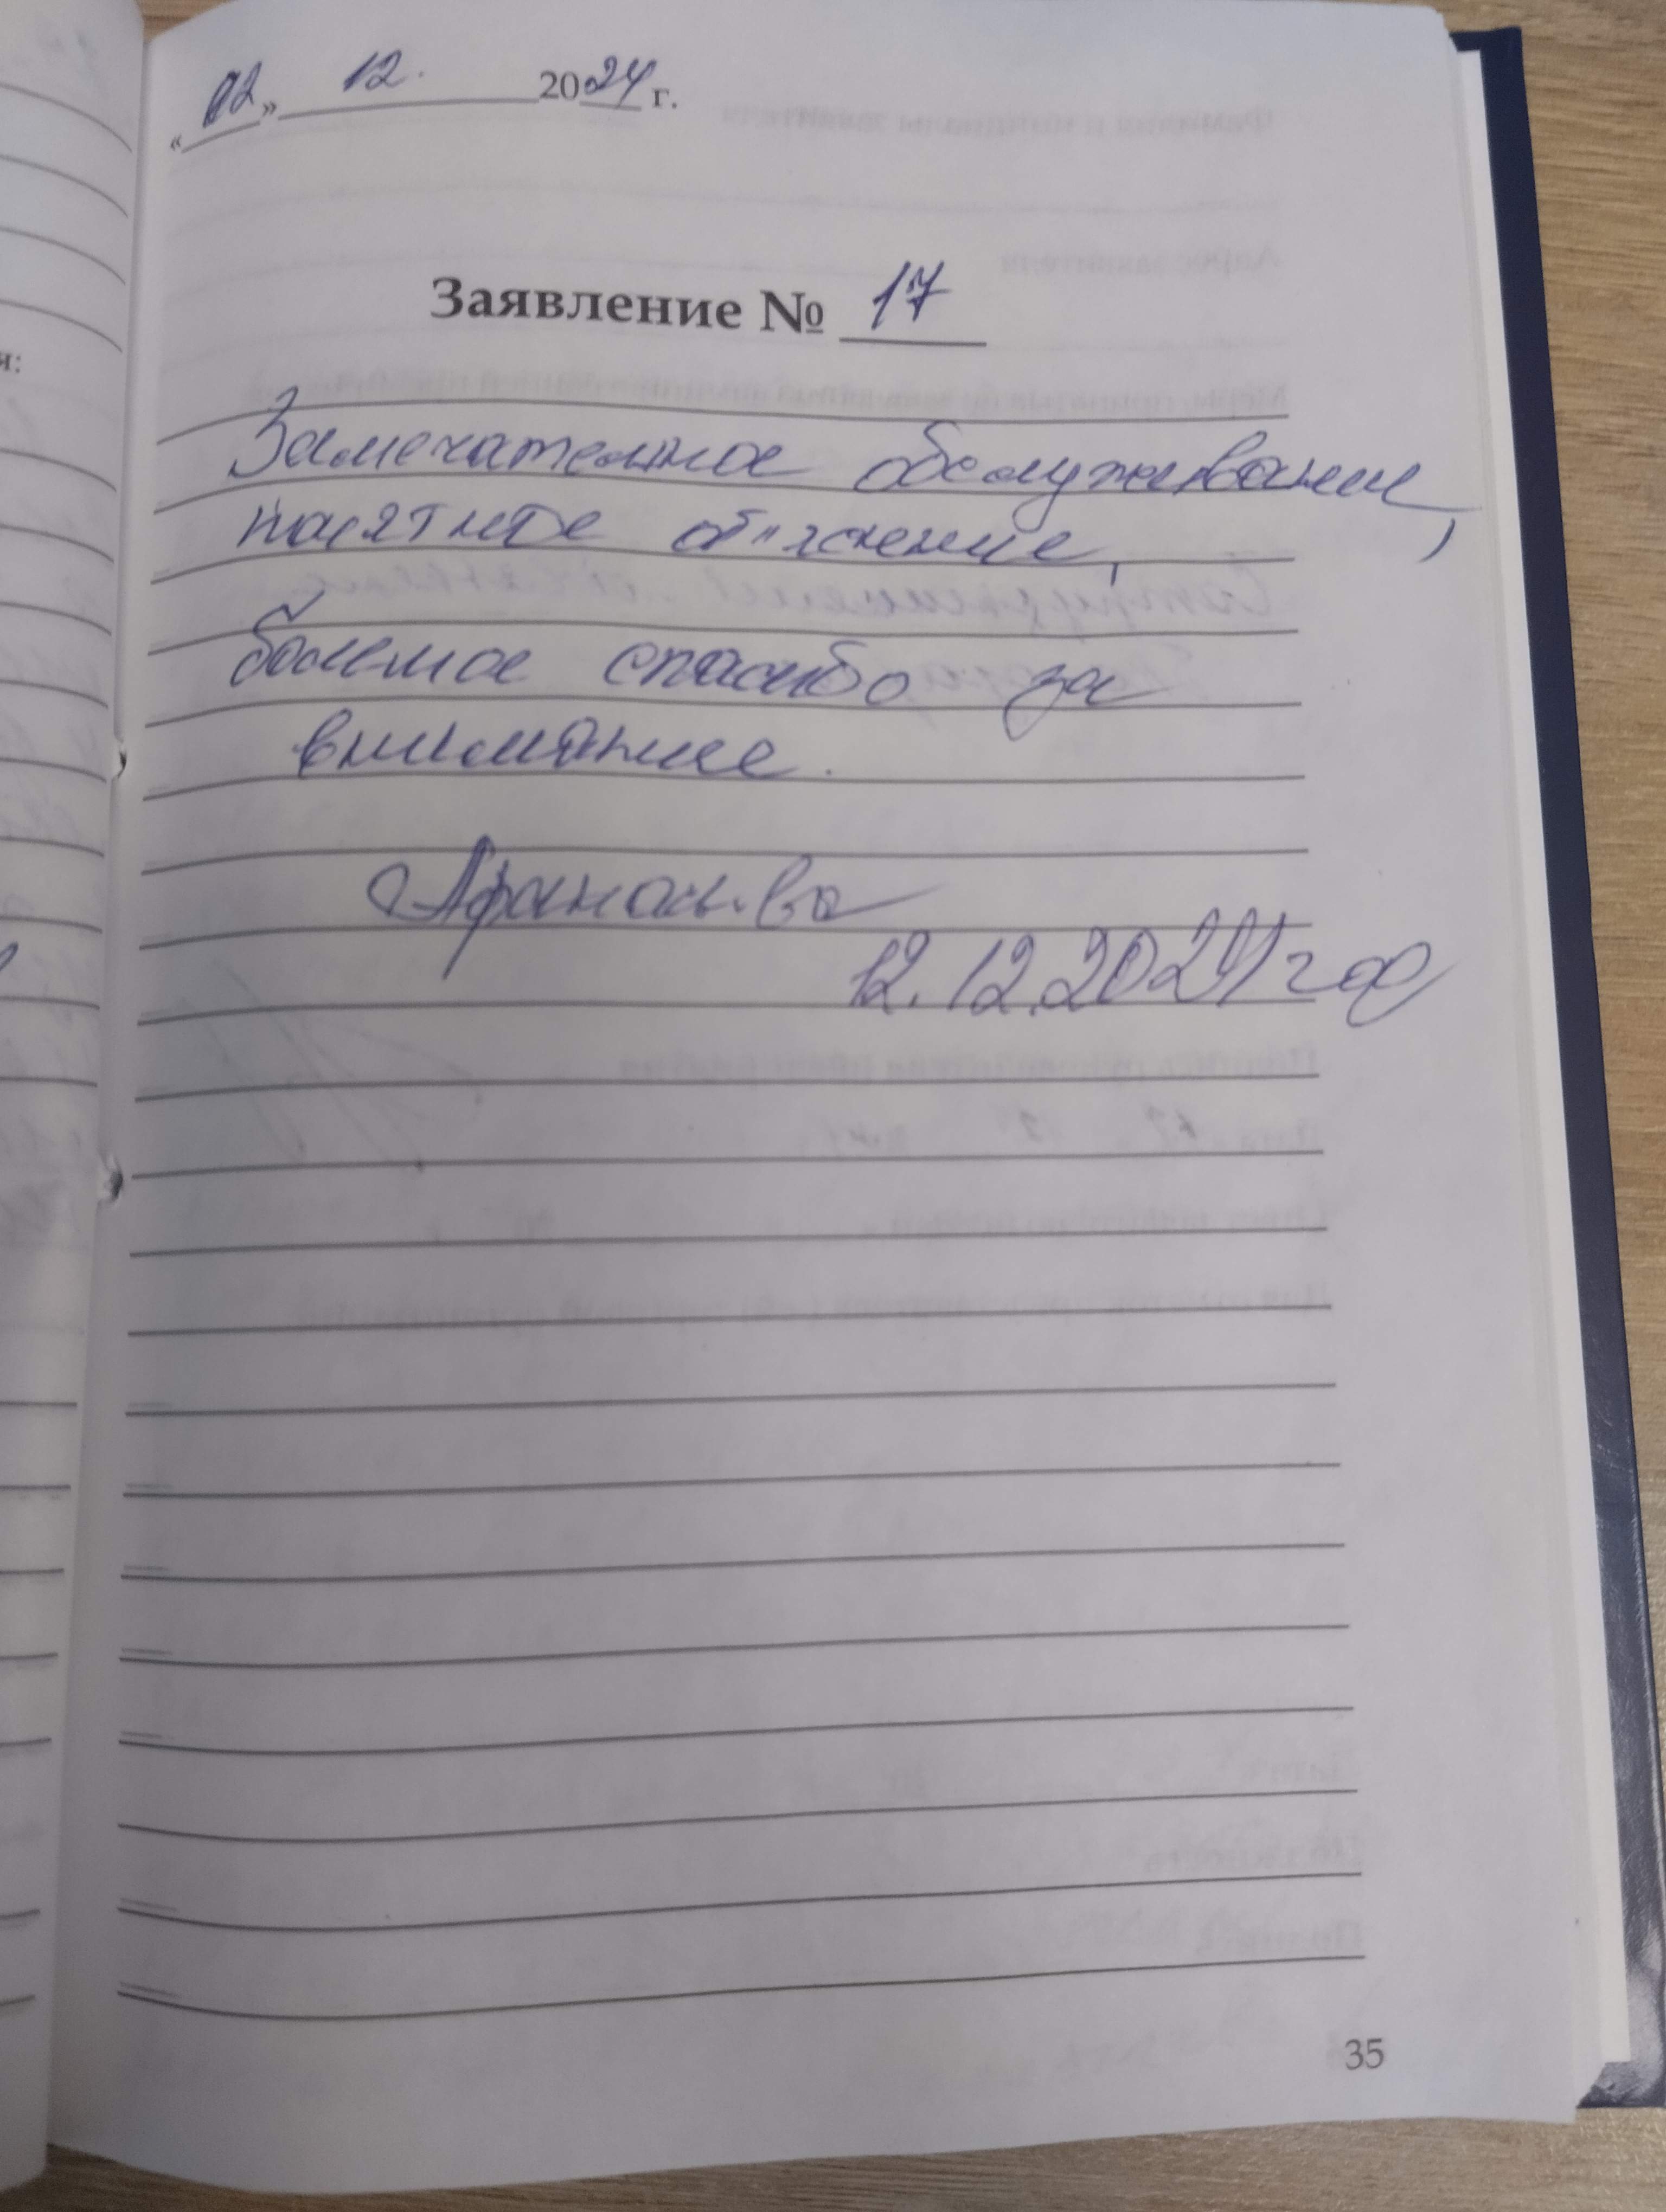 «12» 12. 2024 г.
Заявление № 17
Замечательное обслуживание,
понятное объяснение,
большое спасибо за
внимание.
Афанасьева
12.12.2024 год
я:
35